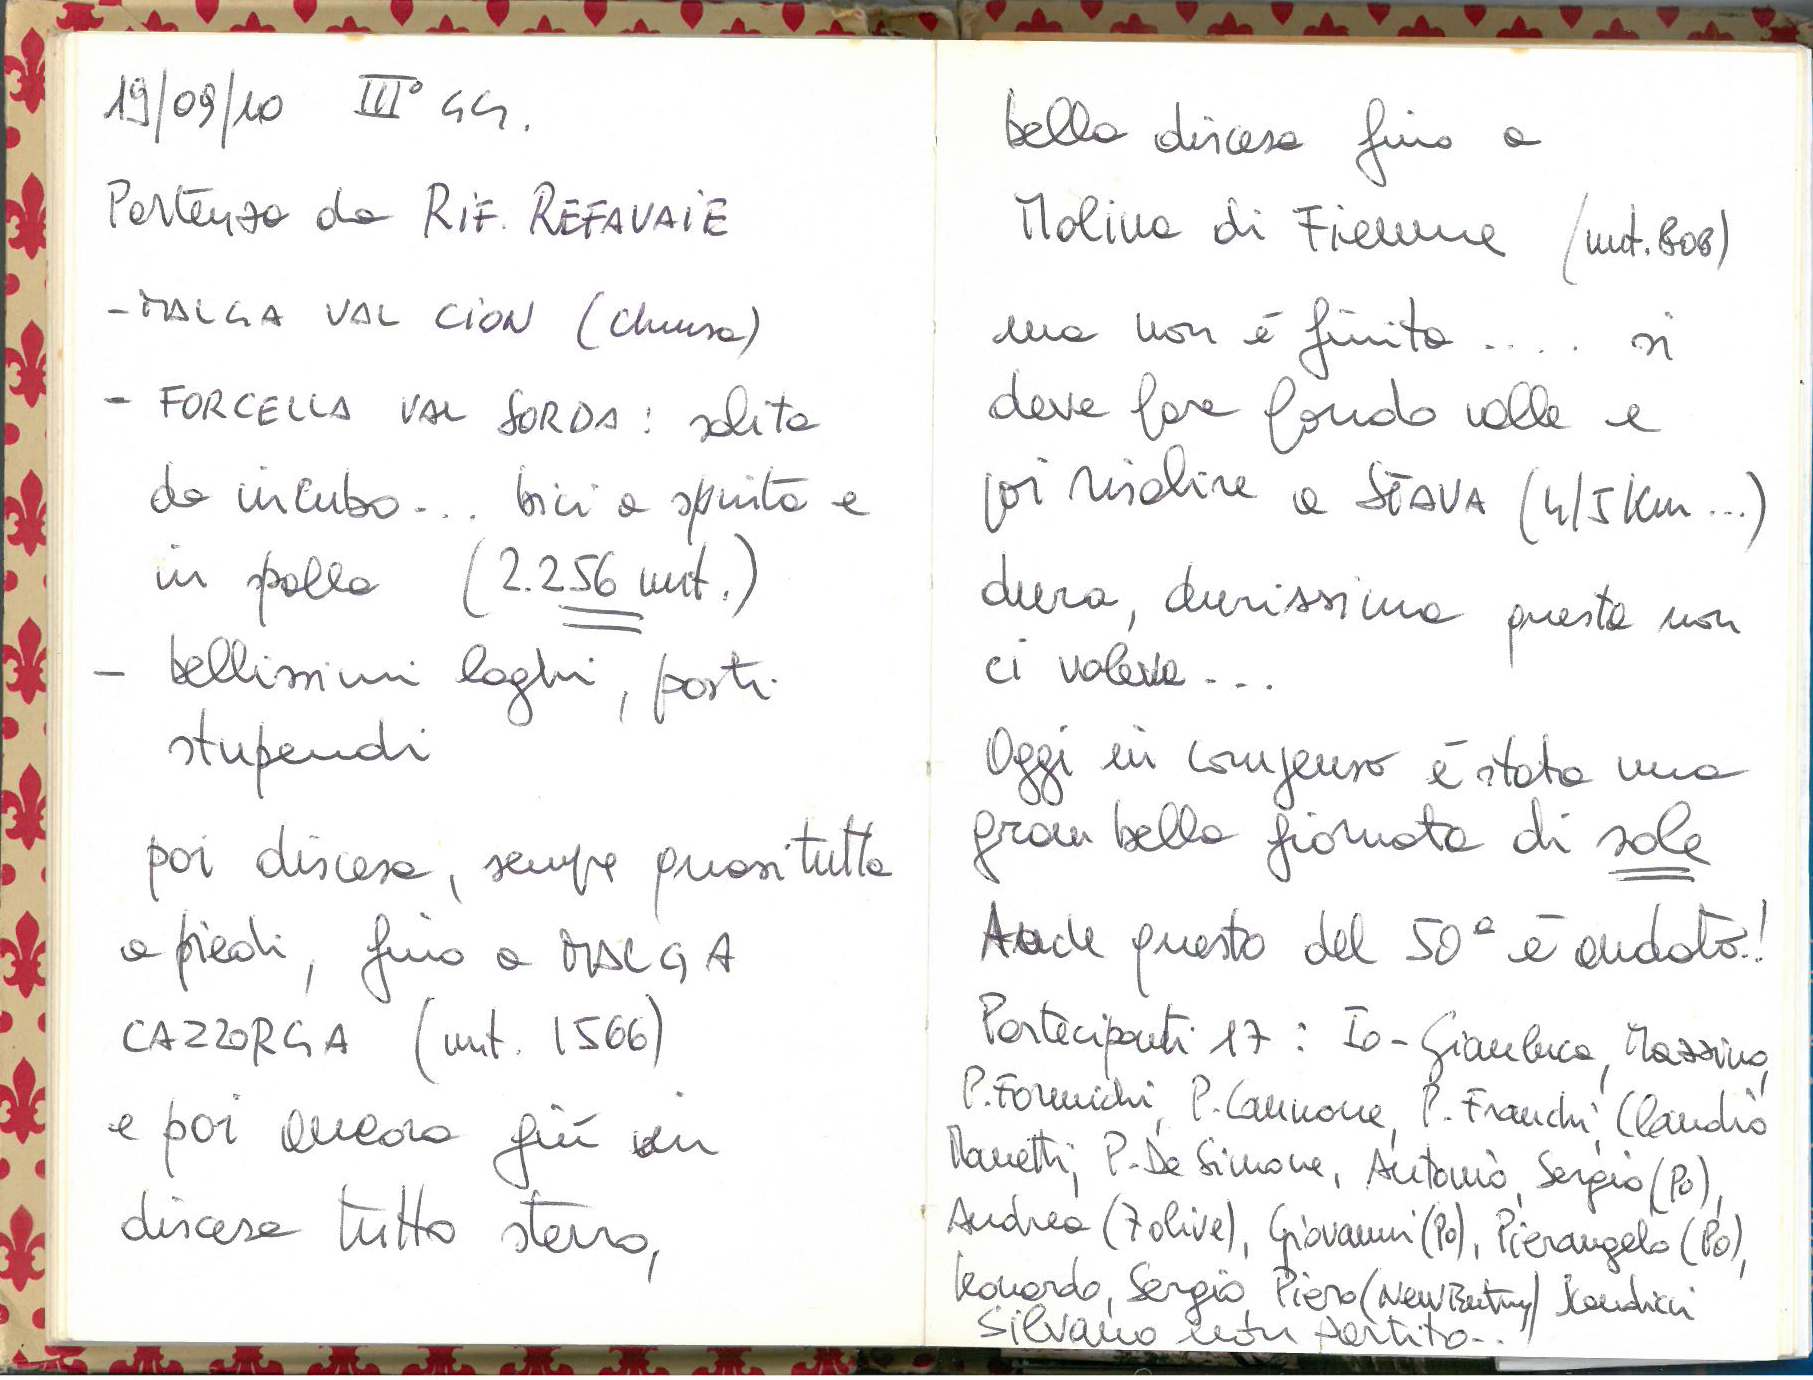 19/09/10 III° GG.
Partenza da RIF. REFAVAIE
- MALGA VAL CION (chiusa)
- FORCELLA VAL SORDA: salita
da incubo... bici a spinta e
in spalla (2.256 mt.)
- bellissimi laghi, posti
stupendi
poi discesa, sempre quasi tutta
a piedi, fino a MALGA
CAZZORGA (mt. 1566)
e poi ancora giù in
discesa tutto sterro,
bella discesa fino a
Molina di Fiemme (mt. 808)
ma non è finita .... si
deve fare fondo valle e
poi risalire a STAVA (4/5 Km...)
dura, durissima questa non
ci voleva...
Oggi in compenso è stata una
gran bella giornata di sole
Anche questo del 50° è andato!!
Partecipanti 17: Io - Gianluca, Mazzino,
P. Formichi, P. Cannone, P. Franchi, Claudio
Manetti, P. De Simone, Antonio, Sergio (Po),
Andrea (7 olive), Giovanni (Po), Pierangelo (Po),
Leonardo, Sergio, Piero Scandicci
Silvano non partito...